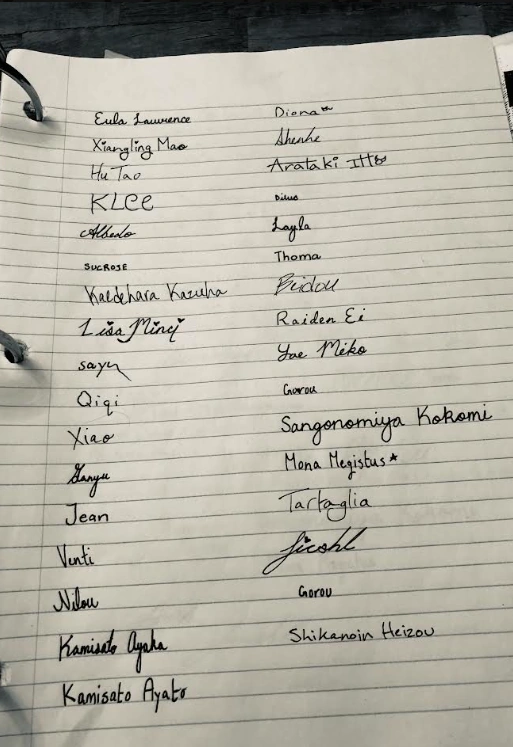 Eula Lawrence
Xiangling Mao
Hu Tao
KLEE
Albedo
SUCROSE
Kaedehara Kazuha
Lisa Minci
sayu
Qiqi
Xiao
Ganyu
Jean
Venti
Nilou
Kamisato Ayaka
Kamisato Ayato
Diona
Shenhe
Arataki Itto
Diluc
Layla
Thoma
Beidou
Raiden Ei
Yae Miko
Gorou
Sangonomiya Kokomi
Mona Megistus*
Tartaglia
Gorou
Shikanoin Heizou